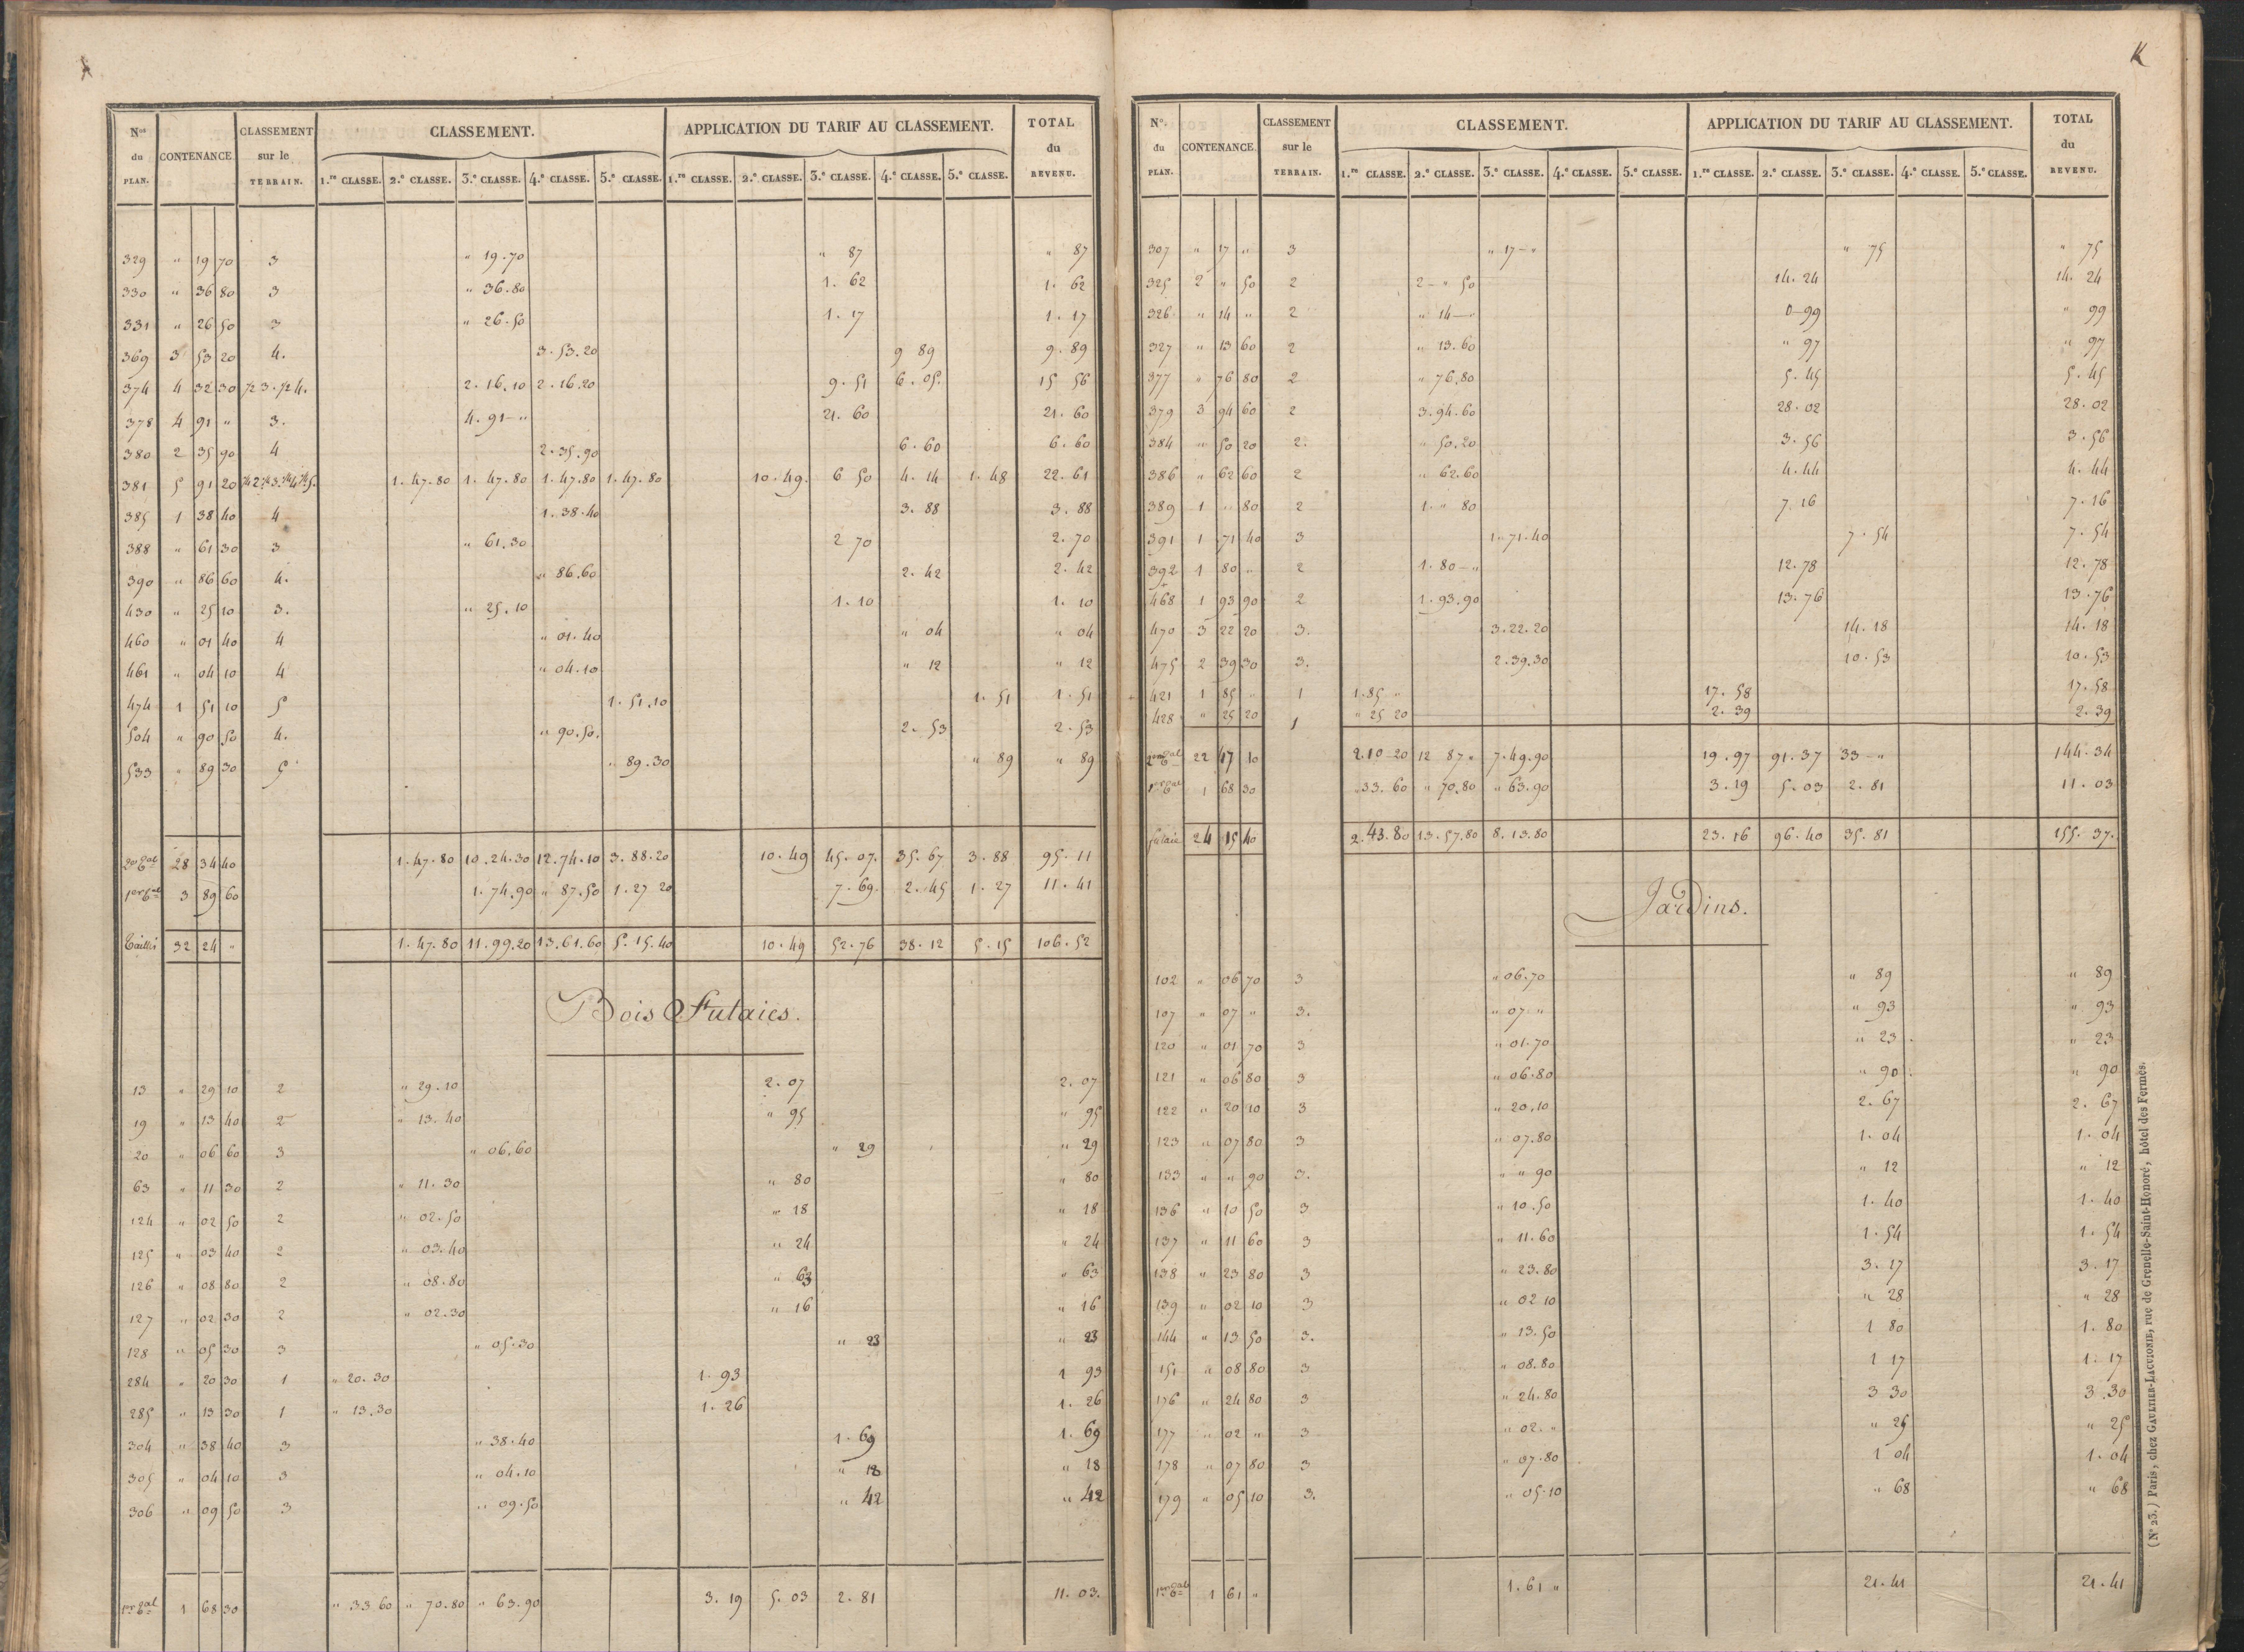 Nos du PLAN. CONTENANCE. CLASSEMENT sur le TERRAIN. CLASSEMENT. APPLICATION DU TARIF AU CLASSEMENT. TOTAL du REVENU.
1.re CLASSE. 2.e CLASSE. 3.e CLASSE. 4.e CLASSE. 5.e CLASSE. 1.re CLASSE. 2.e CLASSE. 3.e CLASSE. 4.e CLASSE. 5.e CLASSE.
329 " 19 70 3 " 19.70 " 87 " 87
330 " 36 80 3 " 36.80 1. 62 1. 62
331 " 26 50 3 " 26.50 1. 17 1. 17
369 3 53 20 4. 3. 53. 20 9 89 9. 89
374 4 32 30 ½ 3. ½ 4. 2. 16. 10 2. 16. 20 9. 51 6. 05. 15 56
378 4 91 " 3. 4. 91 - " 21. 60 21. 60
380 2 35 90 4 2. 35. 90 6. 60 6. 60
381 5 91 20 ¼ 2. ¼ 3. ¼ 4 ¼ 5. 1. 47. 80 1. 47. 80 1. 47. 80 1. 47. 80 10. 49. 6 50 4. 14 1. 48 22. 61
385 1 38 40 4 1. 38. 40 3. 88 3. 88
388 " 61 30 3 " 61. 30 2 70 2. 70
390 " 86 60 4. " 86. 60 2. 42 2. 42
430 " 25 10 3. " 25. 10 1. 10 1. 10
460 " 01 40 4 " 01. 40 " 04 " 04
461 " 04 10 4 " 04. 10 " 12 " 12
474 1 51 10 5 1. 51. 10 1. 51 1. 51
504 " 90 50 4. " 90. 50. 2. 53 2. 53
533 " 89 30 5 " 89. 30 " 89 " 89
28 34 40 1. 47. 80 10. 24. 30 12. 74. 10 3. 88. 20 10. 49 45. 07. 35. 67 3. 88 95. 11
3 89 60 1. 74. 90 " 87. 50 1. 27 20 7. 69. 2. 45 1. 27 11. 41
Taillis 32 24 " 1. 47. 80 11. 99. 20 13. 61. 60 5. 15. 40 10. 49 52. 76 38. 12 5. 15 106. 52
Bois Futaies.
13 " 29 10 2 " 29. 10 2. 07 2. 07
19 " 13 40 2 " 13. 40 " 95 " 95
20 " 06 60 3 " 06. 60 " 29 " 29
63 " 11 30 2 " 11. 30 " 80 " 80
124 " 02 50 2 " 02. 50 " 18 " 18
125 " 03 40 2 " 03. 40 " 24 " 24
126 " 08 80 2 " 08. 80 " 63 " 63
127 " 02 30 2 " 02. 30 " 16 " 16
128 " 05 30 3 " 05. 30 " 23 " 23
284 " 20 30 1 " 20. 30 1. 93 1 93
285 " 13 30 1 " 13. 30 1. 26 1. 26
304 " 38 40 3 " 38. 40 1. 69 1. 69
305 " 04 10 3 " 04. 10 " 18 " 18
306 " 09 50 3 " 09. 50 " 42 " 42
1 68 30 " 33 60 " 70. 80 " 63. 90 3. 19 5. 03 2. 81 11. 03.
No. du PLAN. CONTENANCE. CLASSEMENT sur le TERRAIN. CLASSEMENT. APPLICATION DU TARIF AU CLASSEMENT. TOTAL du REVENU.
1.re CLASSE. 2.e CLASSE. 3.e CLASSE. 4.e CLASSE. 5.e CLASSE. 1.re CLASSE. 2.e CLASSE. 3.e CLASSE. 4.e CLASSE. 5.e CLASSE.
307 " 17 " 3 " 17 - " " 75 " 75
325 2 " 50 2 2 - " 50 14. 24 14. 24
326 " 14 " 2 " 14 - " 0-99 " 99
327 " 13 60 2 " 13. 60 " 97 " 97
377 " 76 80 2 " 76. 80 5. 45 5. 45
379 3 94 60 2 3. 94. 60 28. 02 28. 02
384 " 50 20 2. " 50. 20 3. 56 3. 56
386 " 62 60 2 " 62. 60 4. 44 4. 44
389 1 " 80 2 1. " 80 7. 16 7. 16
391 1 71 40 3 1. 71. 40 7. 54 7. 54
392 1 80 " 2 1. 80 - " 12. 78 12. 78
468 1 93 90 2 1. 93. 90 13. 76 13. 76
470 3 22 20 3. 3. 22. 20 14. 18 14. 18
475 2 39 30 3. 2. 39. 30 10. 53 10. 53
421 1 85 " 1 1. 85 " 17. 58 17. 58
428 " 25 20 1 " 25 20 2. 39 2. 39
22 47 10 2. 10 20 12 87 " 7. 49. 90 19. 97 91. 37 33 - " 144. 34
1 68 30 " 33. 60 " 70. 80 " 63. 90 3. 19 5. 03 2. 81 11. 03
futaie 24 15 40 2. 43. 80 13. 57. 80 8. 13. 80 23. 16 96. 40 35. 81 155. 37.
Jardins.
102 " 06 70 3 " 06. 70 " 89 " 89
107 " 07 " 3. " 07. " " 93 " 93
120 " 01 70 3 " 01. 70 " 23 " 23
121 " 06 80 3 " 06. 80 " 90 " 90
122 " 20 10 3 " 20. 10 2. 67 2. 67
123 " 07 80 3 " 07. 80 1. 04 1. 04
133 " " 90 3. " " 90 " 12 " 12
136 " 10 50 3 " 10. 50 1. 40 1. 40
137 " 11 60 3 " 11. 60 1. 54 1. 54
138 " 23 80 3 " 23. 80 3. 17 3. 17
139 " 02 10 3 " 02 10 " 28 " 28
144 " 13 50 3. " 13. 50 1 80 1. 80
151 " 08 80 3 " 08. 80 1 17 1. 17
176 " 24 80 3 " 24. 80 3 30 3. 30
177 " 02 " 3 " 02. " " 25 " 25
178 " 07 80 3 " 07. 80 1 04 1. 04
179 " 05 10 3. " 05. 10 " 68 " 68
1 61 " 1. 61 " 21. 41 21. 41
(N° 23.) Paris, chez GAULTIER-LAGUIONIE, rue de Grenelle-Saint-Honoré, hôtel des Fermes.